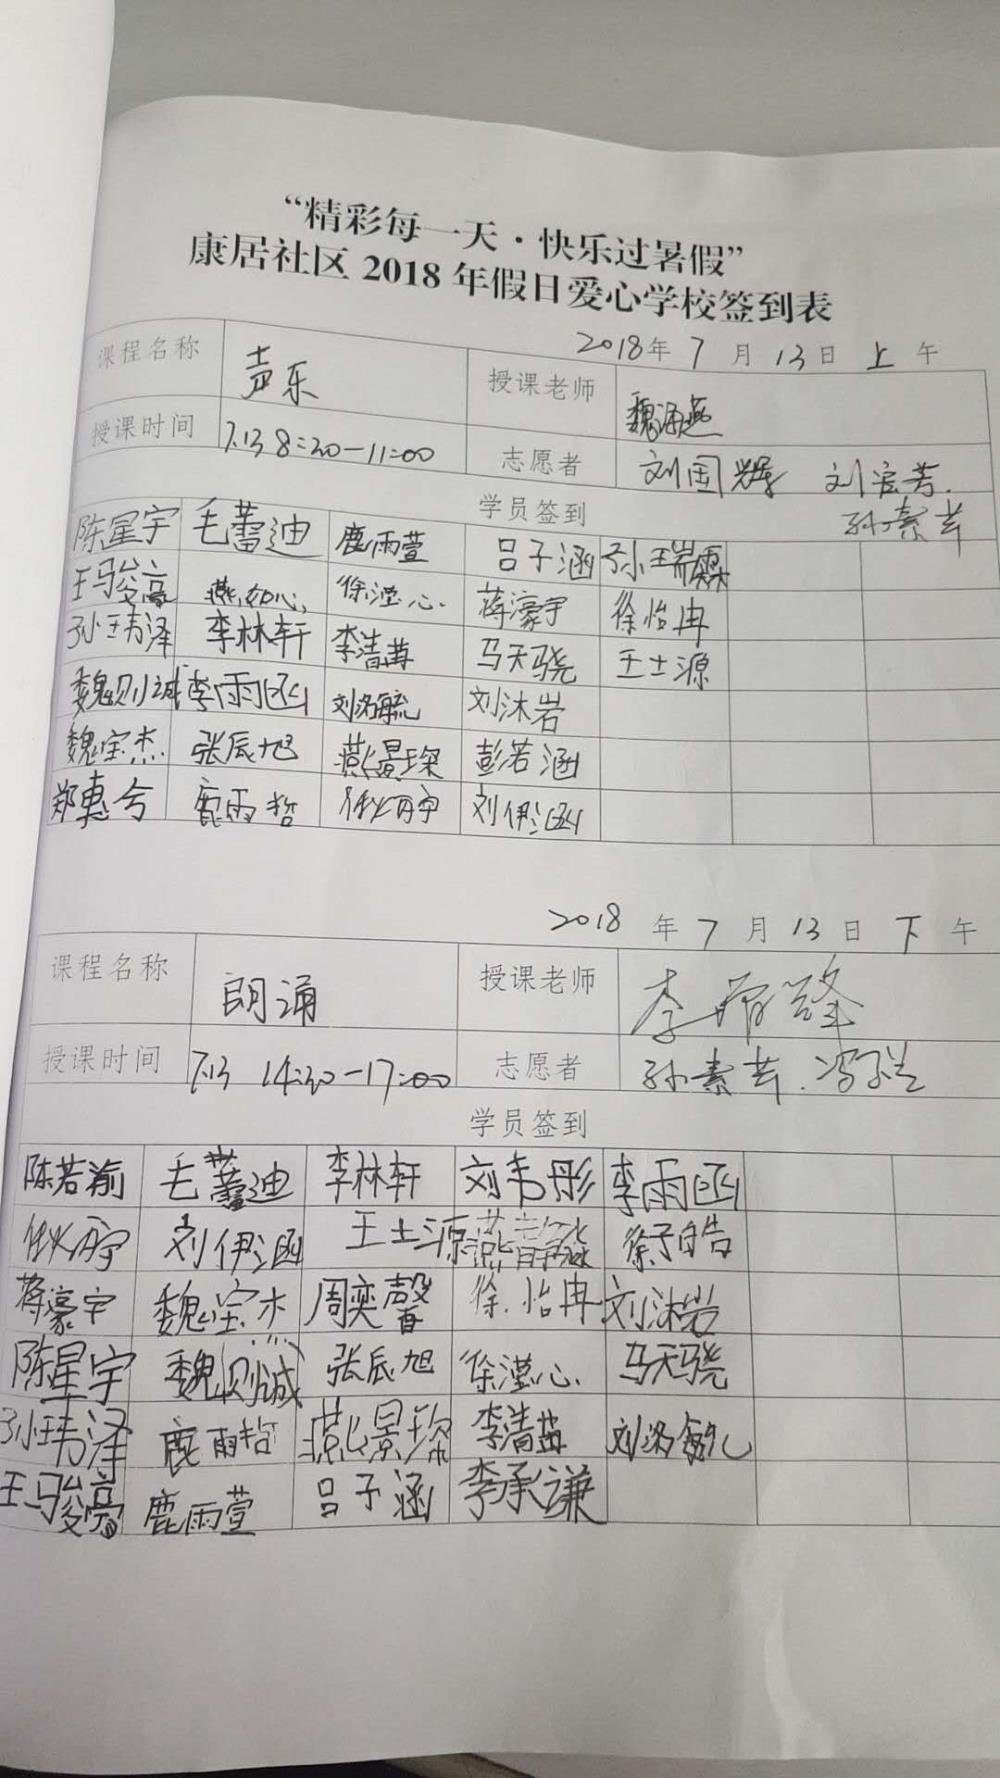 “精彩每一天·快乐过暑假”
康居社区 2018 年假日爱心学校签到表
2018年 7 月 13日 上 午
课程名称 声乐 授课老师 魏涌燕
授课时间 7.13 8:30-11:00 志愿者 刘国辉 刘宏芳.
学员签到 孙素芹
陈星宇 毛蕾迪 鹿雨萱 吕子涵 孙瑞霖
王马俊亮 燕如心 徐滢心. 蒋濠宇 徐怡冉
孙玮泽 李林轩 李清苒 马天骁 王士源
魏则诚 李雨函 刘洺毓 刘沐岩
魏宝杰. 张辰旭 燕景琛 彭若涵
郑惠兮 鹿雨哲 刘伊涵
2018 年 7 月 13 日 下 午
课程名称 朗诵 授课老师 李
授课时间 7.13 14:30-17:00 志愿者 孙素芹.冯
学员签到
陈若渝 毛蕾迪 李林轩 刘韦彤 李雨函
刘伊涵 王士源 徐子皓
蒋濠宇 魏宝杰 周奕馨 徐.怡冉 刘沐岩
陈星宇 魏则诚 张辰旭 徐滢心. 马天骁
孙玮泽 鹿雨哲 燕景琛 李清苒 刘洺毓
王马俊亮 鹿雨萱 吕子涵 李承谦